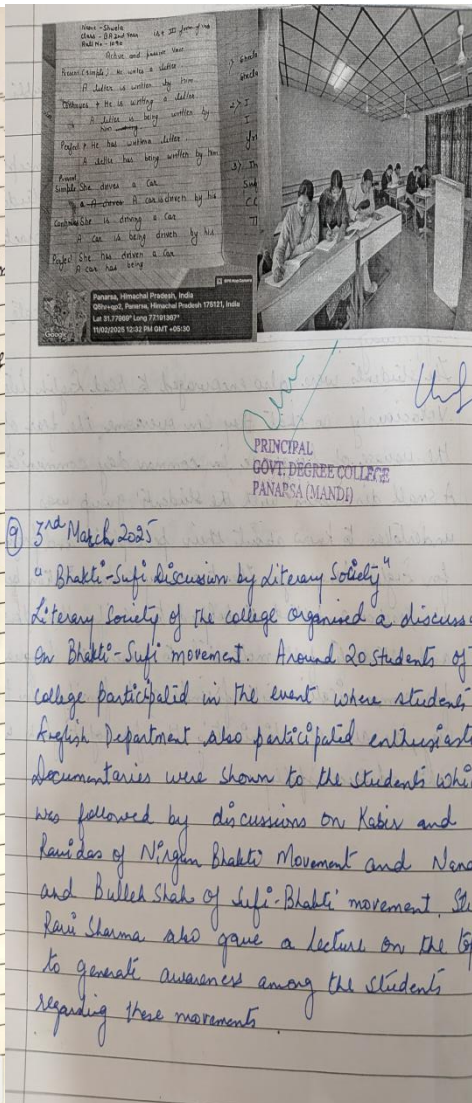 Name - Shweta
Class - BA 2nd Year
Roll No -
Active and passive Voice
Present (simple): He writes a letter
A letter is written by him
Continues → He is writing a letter
A letter is being written by
him
Perfect → He has written letter.
A letter has being written by him
Simple She drives a Car
A car is driven by his
Continues She is driving a Car
A car is being driven by his
Perfect She has driven a Car
A car has being
Google
Panarsa, Himachal Pradesh, India
Panarsa, Himachal Pradesh 175121, India
Lat 31.77869° Long 77.191387°
11/02/2025 12:32 PM GMT +05:30
PRINCIPAL
GOVT. DEGREE COLLEGE
PANARSA (MANDI)
9 3rd March 2025
"Bhakti-Sufi Discussion by Literary Society"
Literary Society of the college organised a discuss
on Bhakti-Sufi movement. Around 20 students of
college participated in the event where students
English Department also participated enthusiast
Documentaries were shown to the students whi
was followed by discussions on Kabir and
Ravidas of Nirgun Bhakti Movement and Nana
and Bulleh Shah of Sufi-Bhakti movement. Stu
Ravi Sharma also gave a lecture on the top
to generate awareness among the students
regarding these movements.